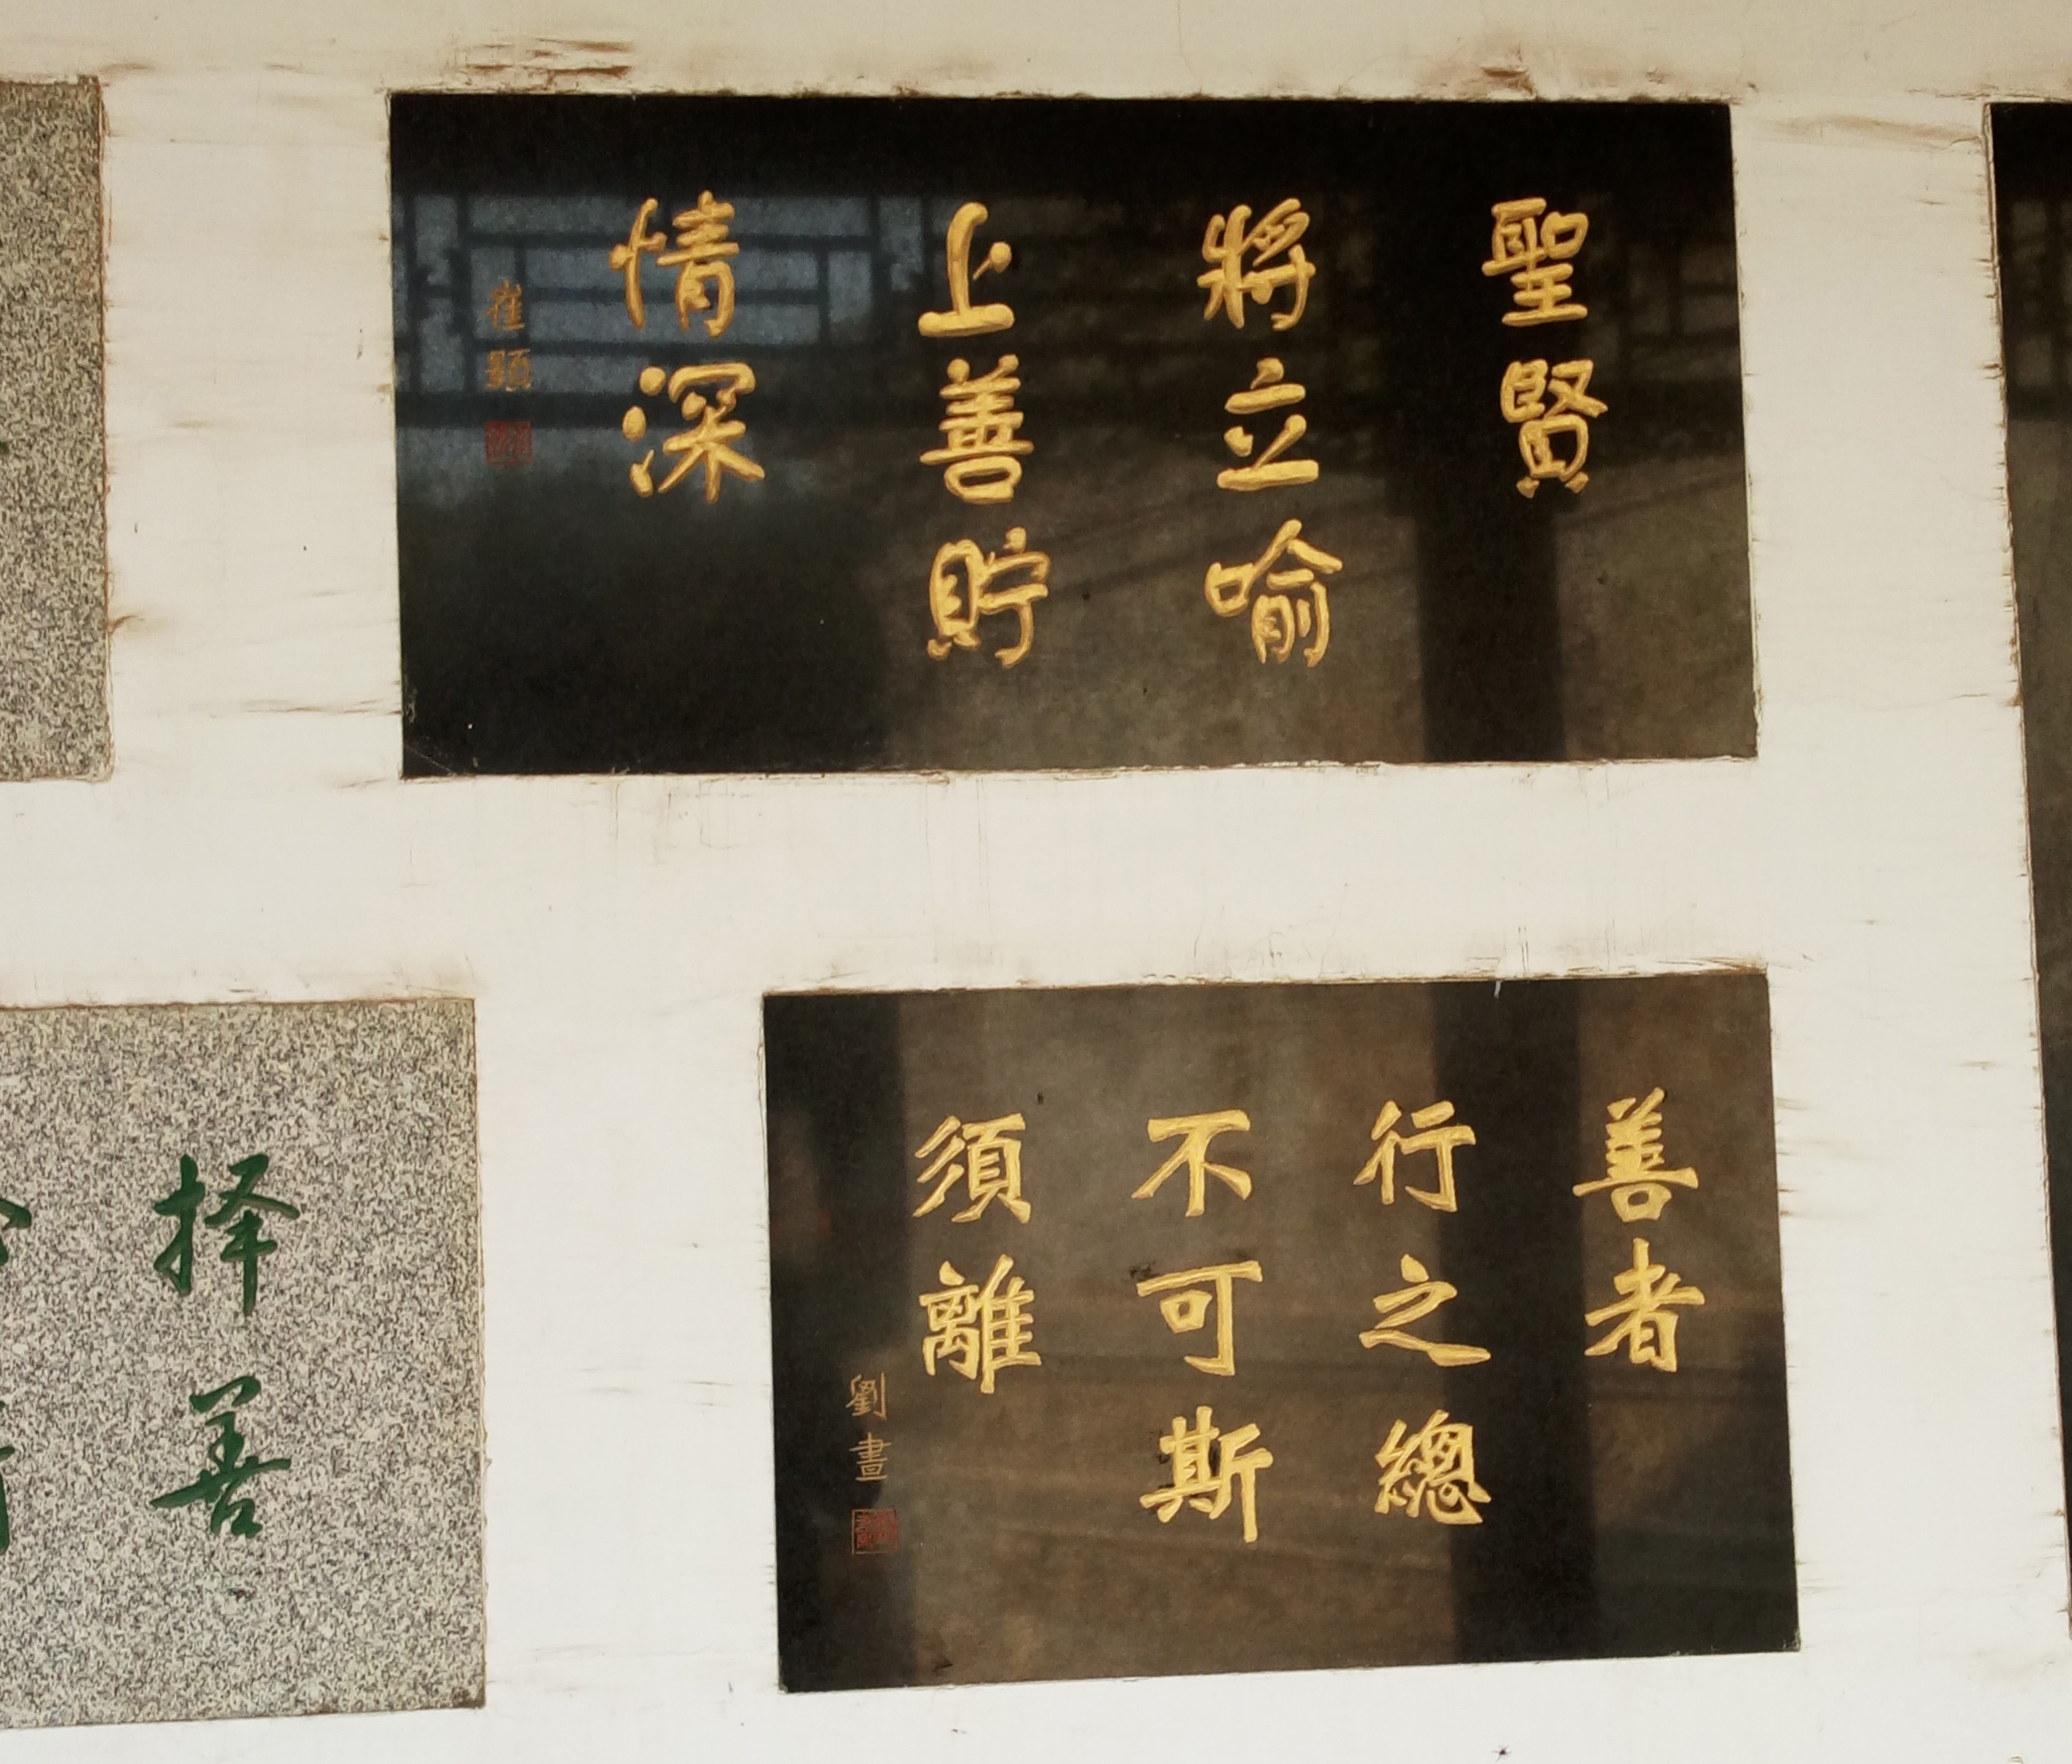 聖賢
將立喻
上善貯
情深
崔顥
善者
行之總
不可斯
須離
劉晝
择善